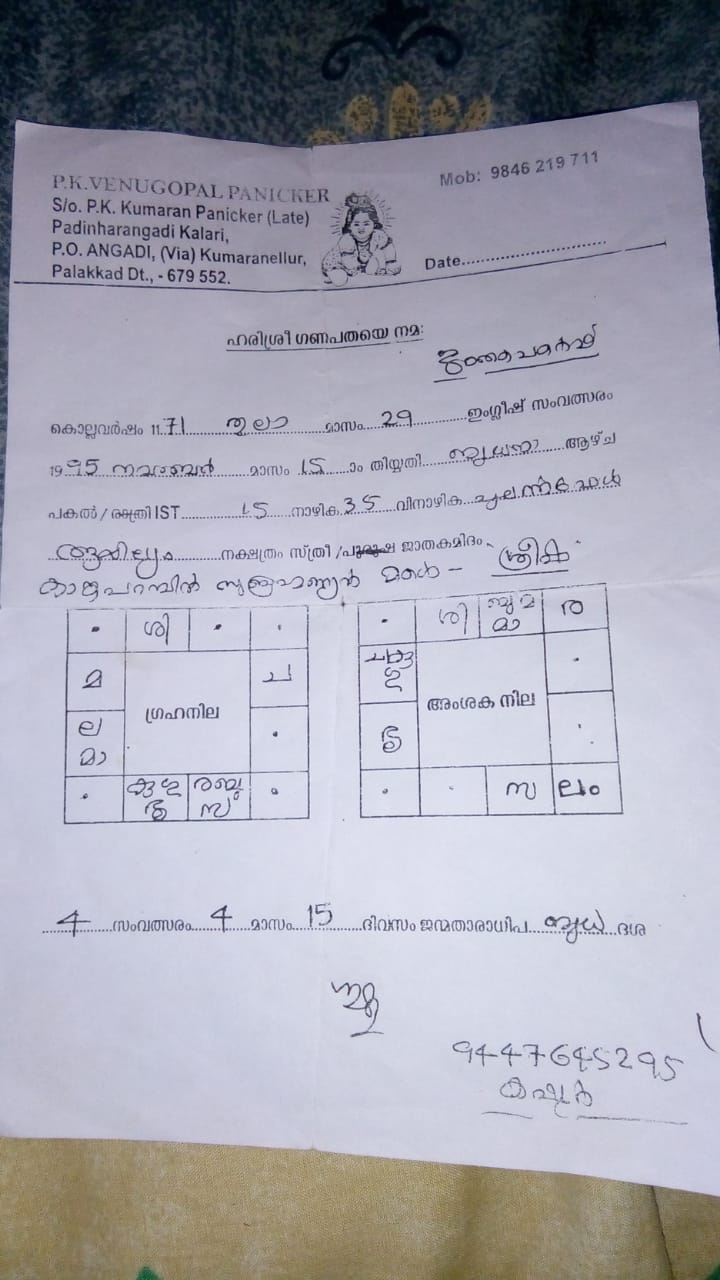 P.K.VENUGOPAL PANICKER
S/o. P.K. Kumaran Panicker (Late)
Padinharangadi Kalari,
P.O. ANGADI, (Via) Kumaranellur,
Palakkad Dt., - 679 552.
Mob: 9846 219 711
Date
ഹരിശ്രീ ഗണപതയെ നമഃ
കൊല്ലവർഷം 1171 തുലാ മാസം 29 ഇംഗ്ലീഷ് സംവത്സരം
1995 നവംബർ മാസം 15 ാം തിയ്യതി ബുധനാ ആഴ്ച
പകൽ / രാത്രി IST 15 നാഴിക 35 വിനാഴിക
നക്ഷത്രം സ്ത്രീ / പുരുഷ ജാതകമിദം
മകൾ –
ശി
മ ച
ഗ്രഹനില
ല
മാ
സ
ശി ബു മ ര
മാ
അംശക നില
സ ലം
4 സംവത്സരം 4 മാസം 15 ദിവസം ജന്മതാരാധിപ ബുധ ദശ
9447645295